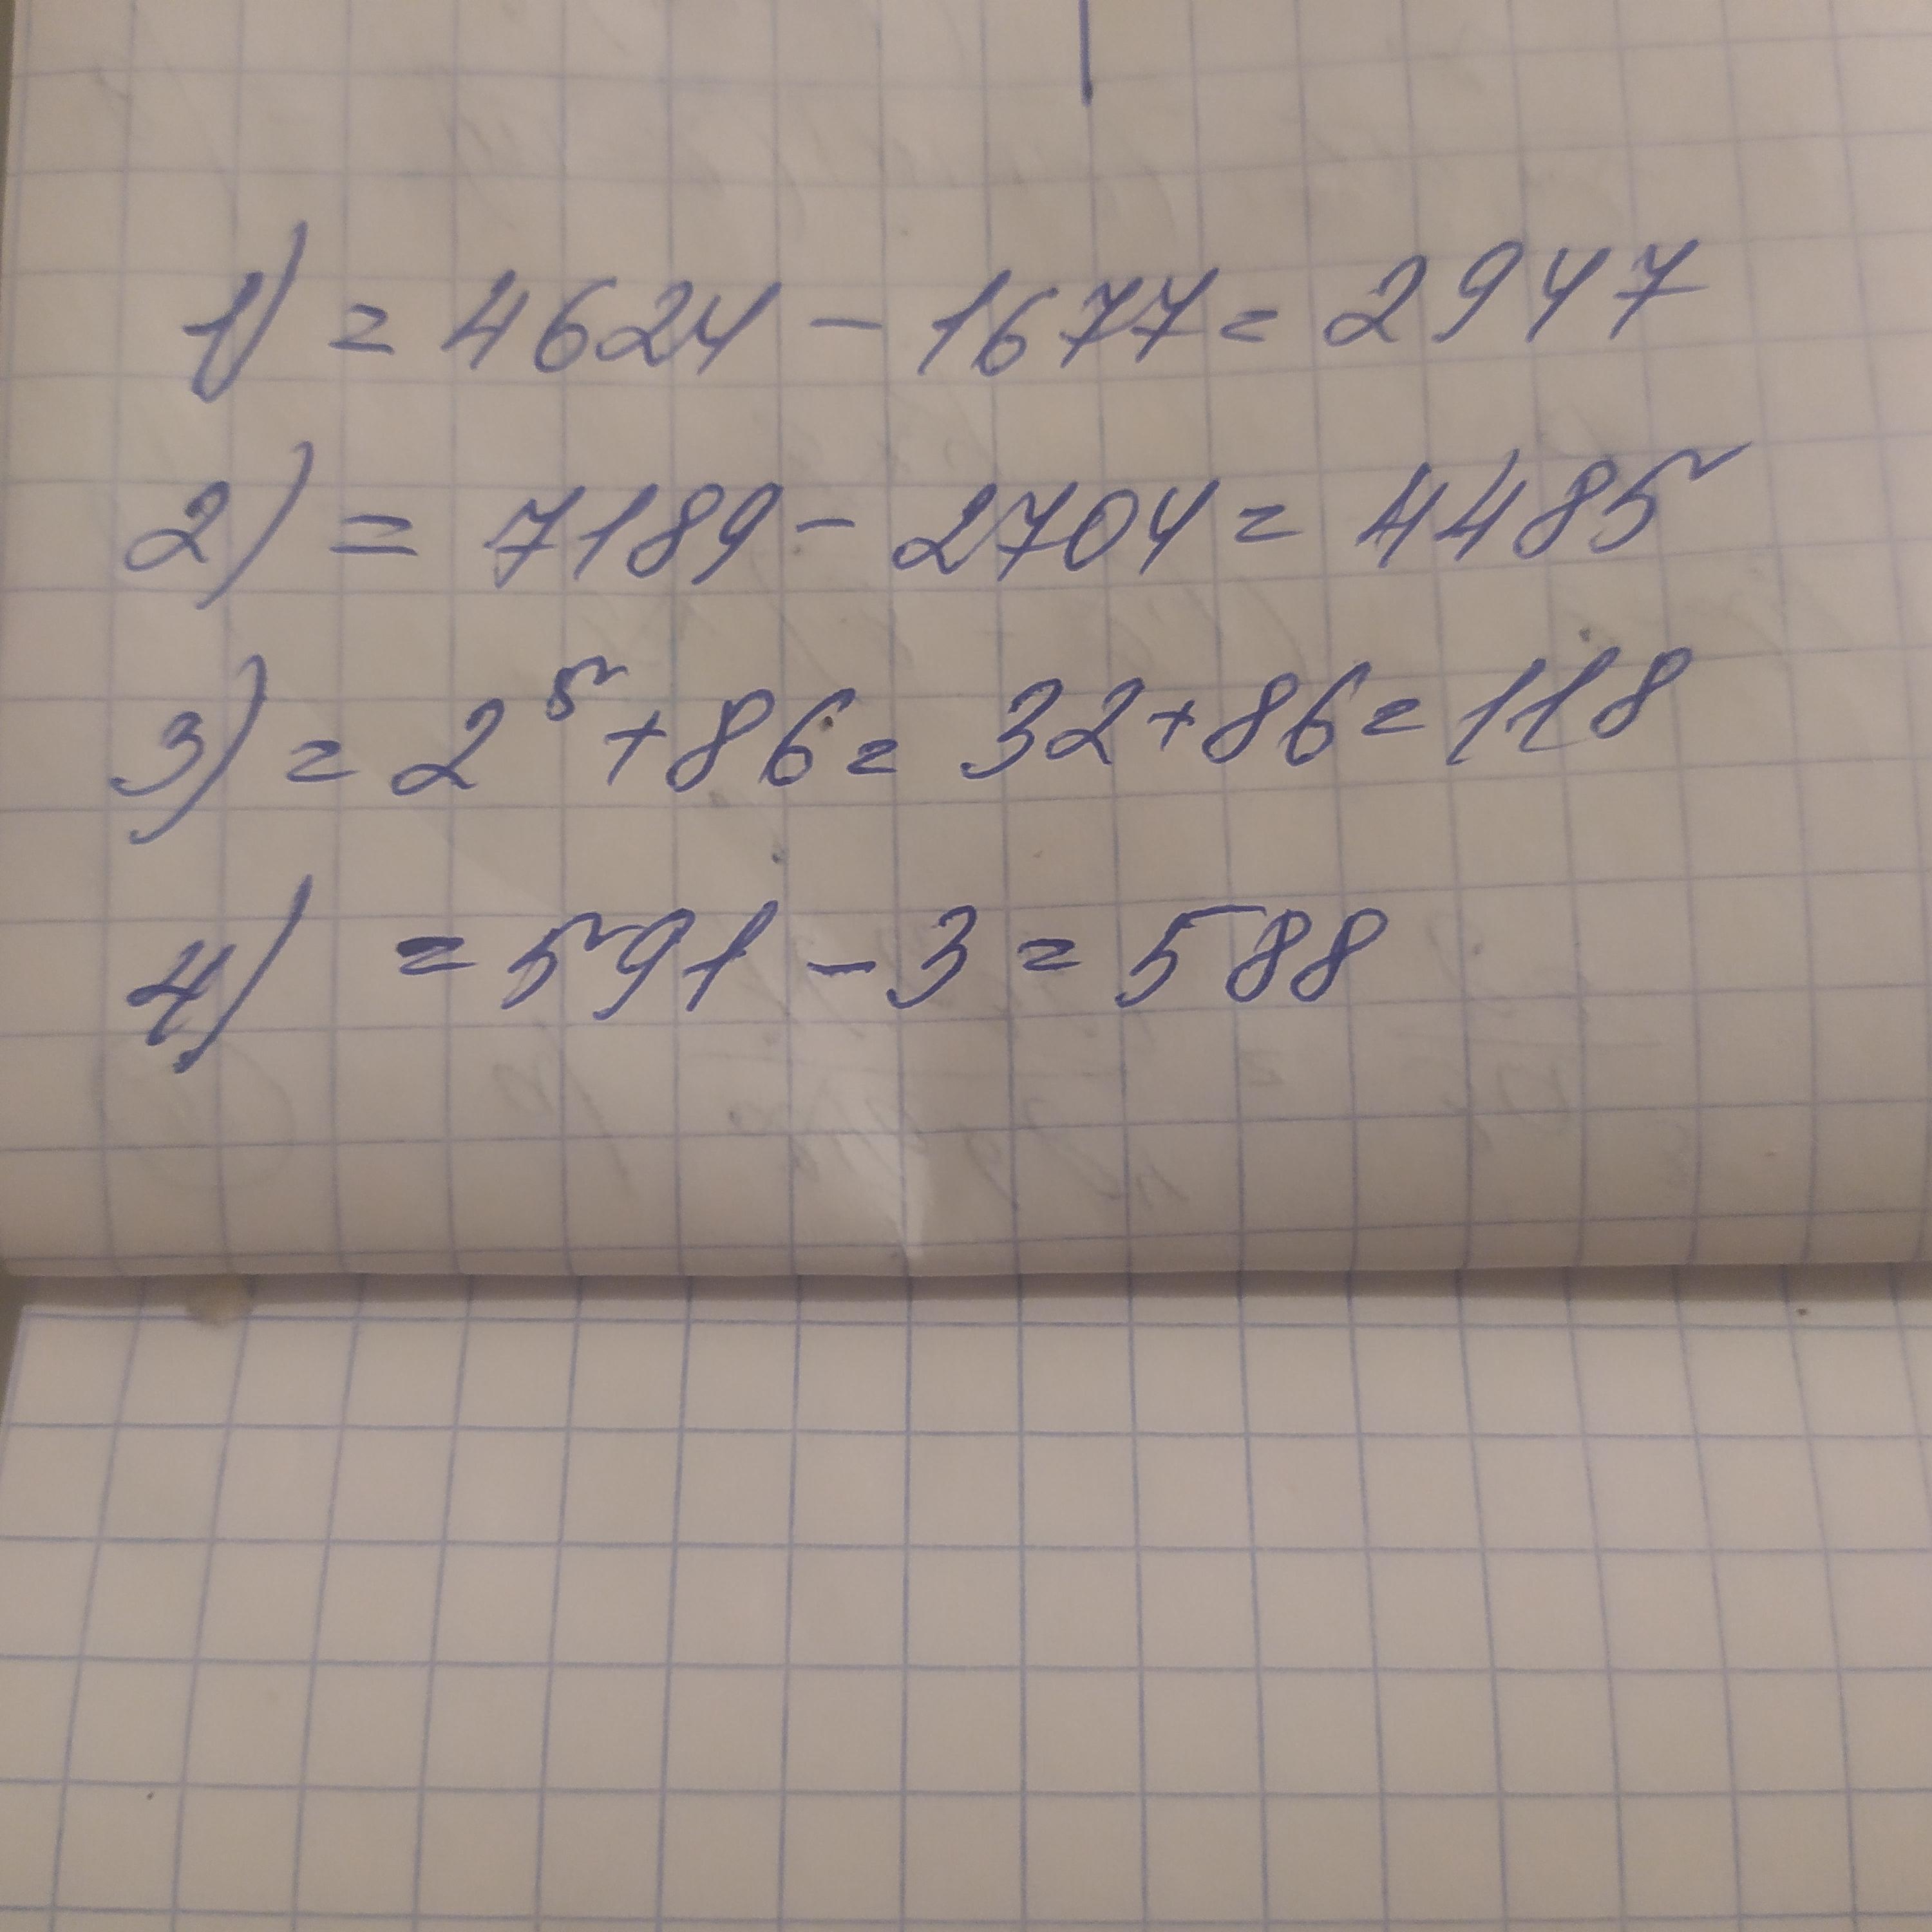 1) = 4624 - 1677 = 2947
2) = 7189 - 2704 = 4485
3) = 2⁵ + 86 = 32 + 86 = 118
4) = 591 - 3 = 588